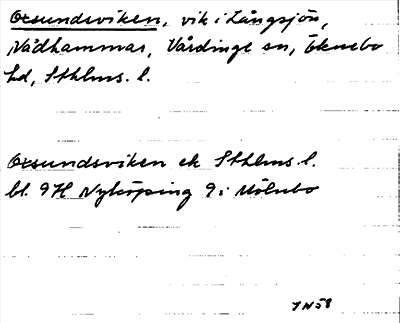 Oxsundsviken, vik i Långsjön,
Nådhammar, Vårdinge sn, Öknebo
hd, Sthlms. l.
Oxsundsviken ek Sthlms. l.
bl. 9H Nyköping 9i Mölnbo
JN58